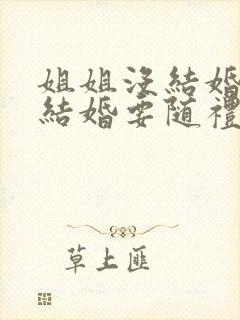 姐姐沒結婚
結婚要随禮
草上匪